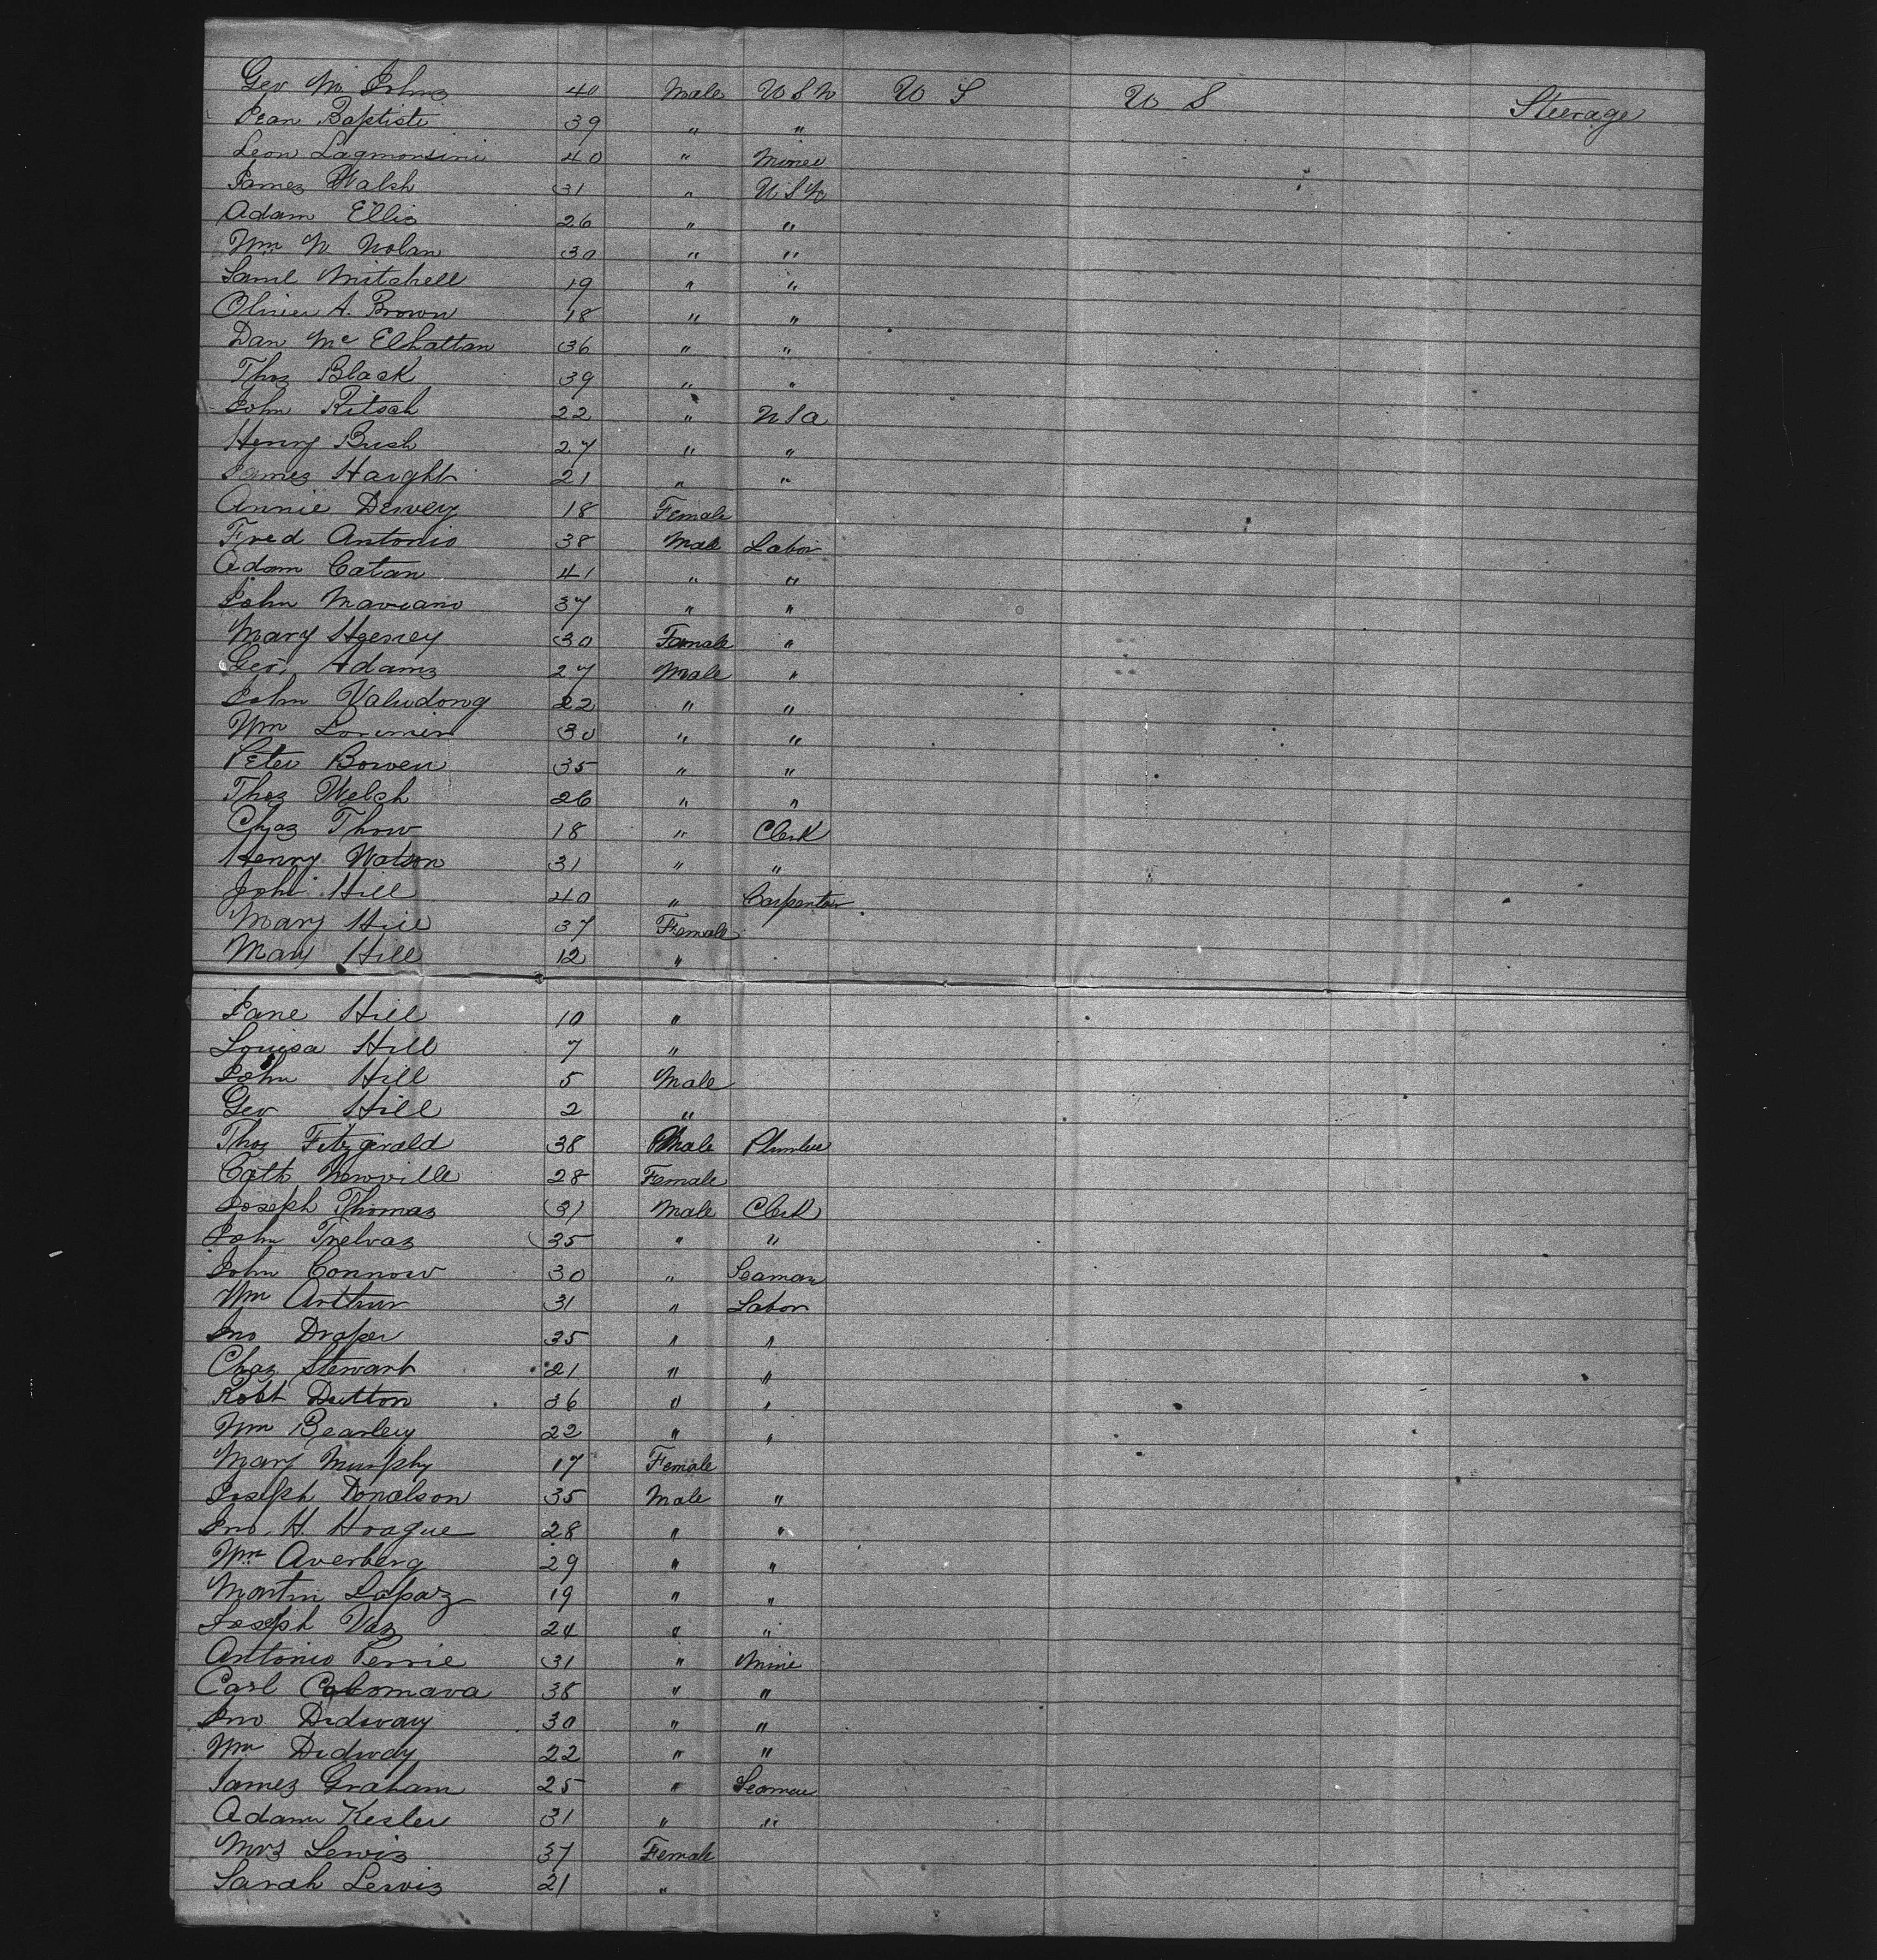 Geo W Johns 40 Male U S N U S U S Steerage
Jean Baptiste 39 " "
Leon Lagmorsini 40 " Miner
James Walsh 31 " U S N
Adam Ellis 26 " "
Wm N Nolan 30 " "
Saml Mitchell 19 " "
Oliver A. Brown 18 " "
Dan Mc Elhattan 36 " "
Thos Black 39 " "
John Ritsch 22 " U S A
Henry Bush 27 " "
James Haight 21 " "
Annie Dewey 18 Female
Fred Antonio 38 Male Labor
Adam Catan 41 " "
John Maviano 37 " "
Mary Heeney 30 Female "
Geo Adams 27 Male "
John Valudong 22 " "
Wm Lorimer 30 " "
Peter Bowen 35 " "
Thos Welch 26 " "
Chas Thow 18 " Clerk
Henry Watson 31 " "
John Hill 40 " Carpenter
Mary Hill 37 Female
Mary Hill 12 "
Jane Hill 10 "
Louisa Hill 7 "
John Hill 5 Male
Geo Hill 2 "
Thos Fitzgerald 38 Male Plumber
Cath Newville 28 Female
Joseph Thomas 31 Male Clerk
John Trelvas 35 " "
John Connow 30 " Seaman
Wm Arthur 31 " Labor
Jno Draper 35 " "
Chas Stewart 21 " "
Robt Dutton 36 " "
Wm Bearley 22 " "
Mary Murphy 17 Female
Joseph Donalson 35 Male "
Jno H. Hoague 28 " "
Wm Averberg 29 " "
Martin Lopaz 19 " "
Joseph Vaz 24 " "
Antonio Perrie 31 " Mine
Carl Calomava 38 " "
Jno Didway 30 " "
Wm Didway 22 " "
James Graham 25 " Seaman
Adam Kesler 31 " "
Mrs Lewis 37 Female
Sarah Lewis 21 "